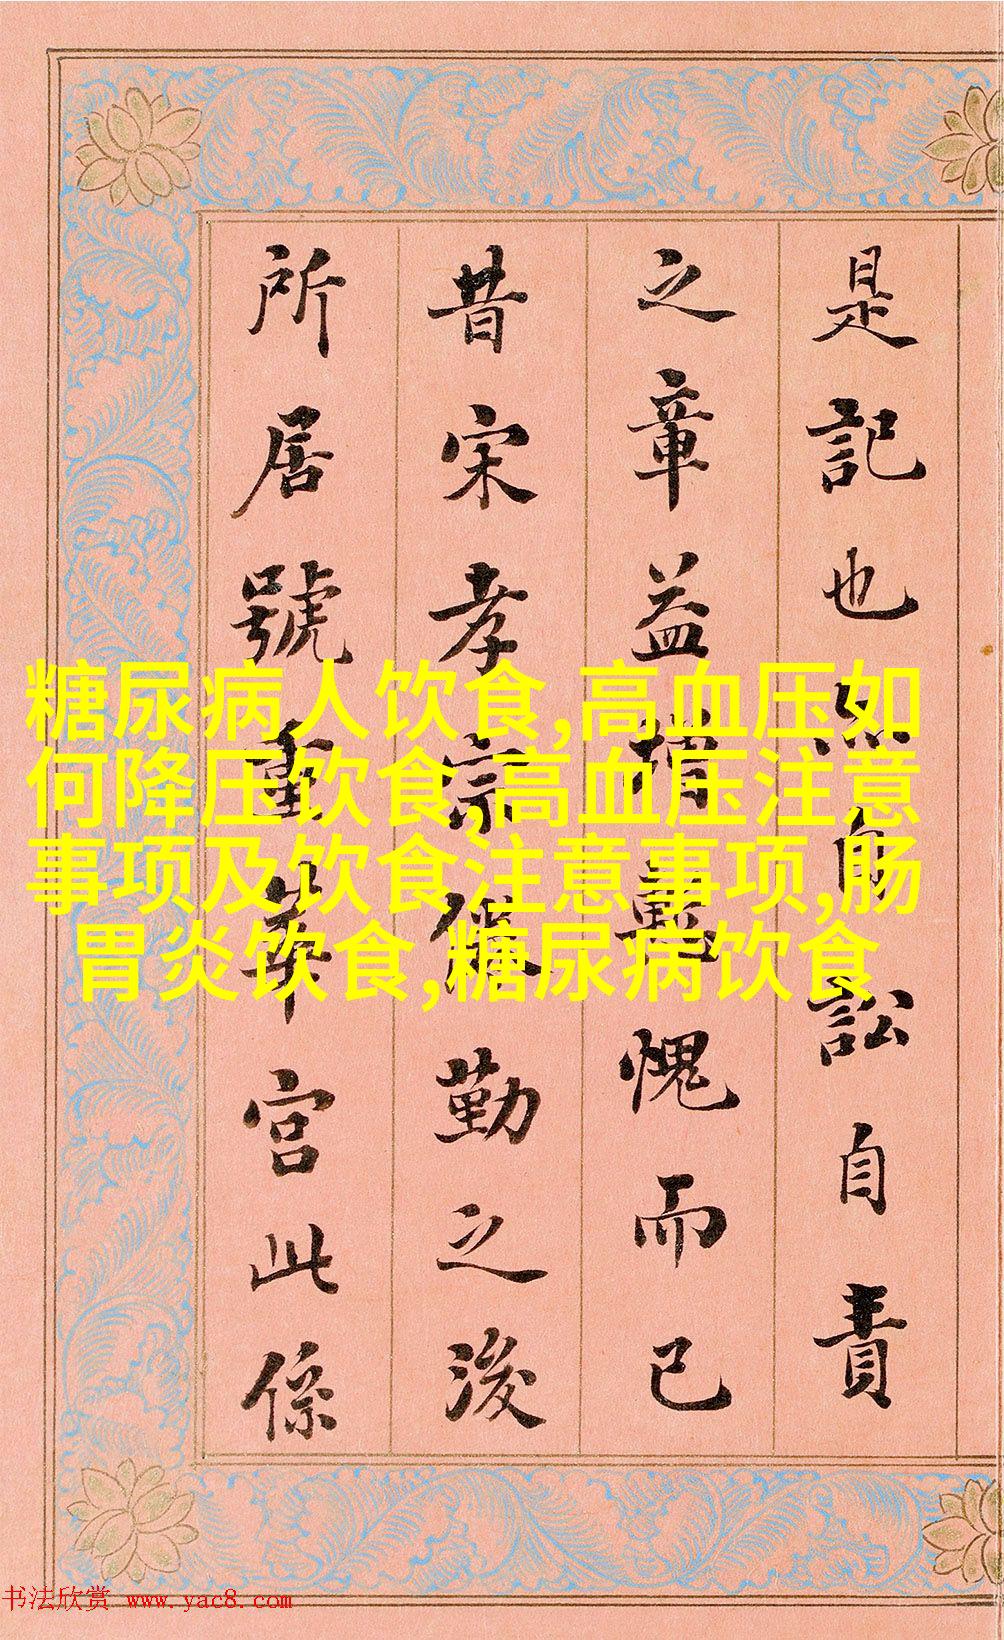 是記也自訟自責
之章益增愧而已
昔宋孝宗倦勤之後
所居號重華宮此係
糖尿病人饮食,高血压如
何降压饮食,高血压注意
事项及饮食注意事项,肠
胃炎饮食,糖尿病饮食
书法欣赏 www.yac8.com